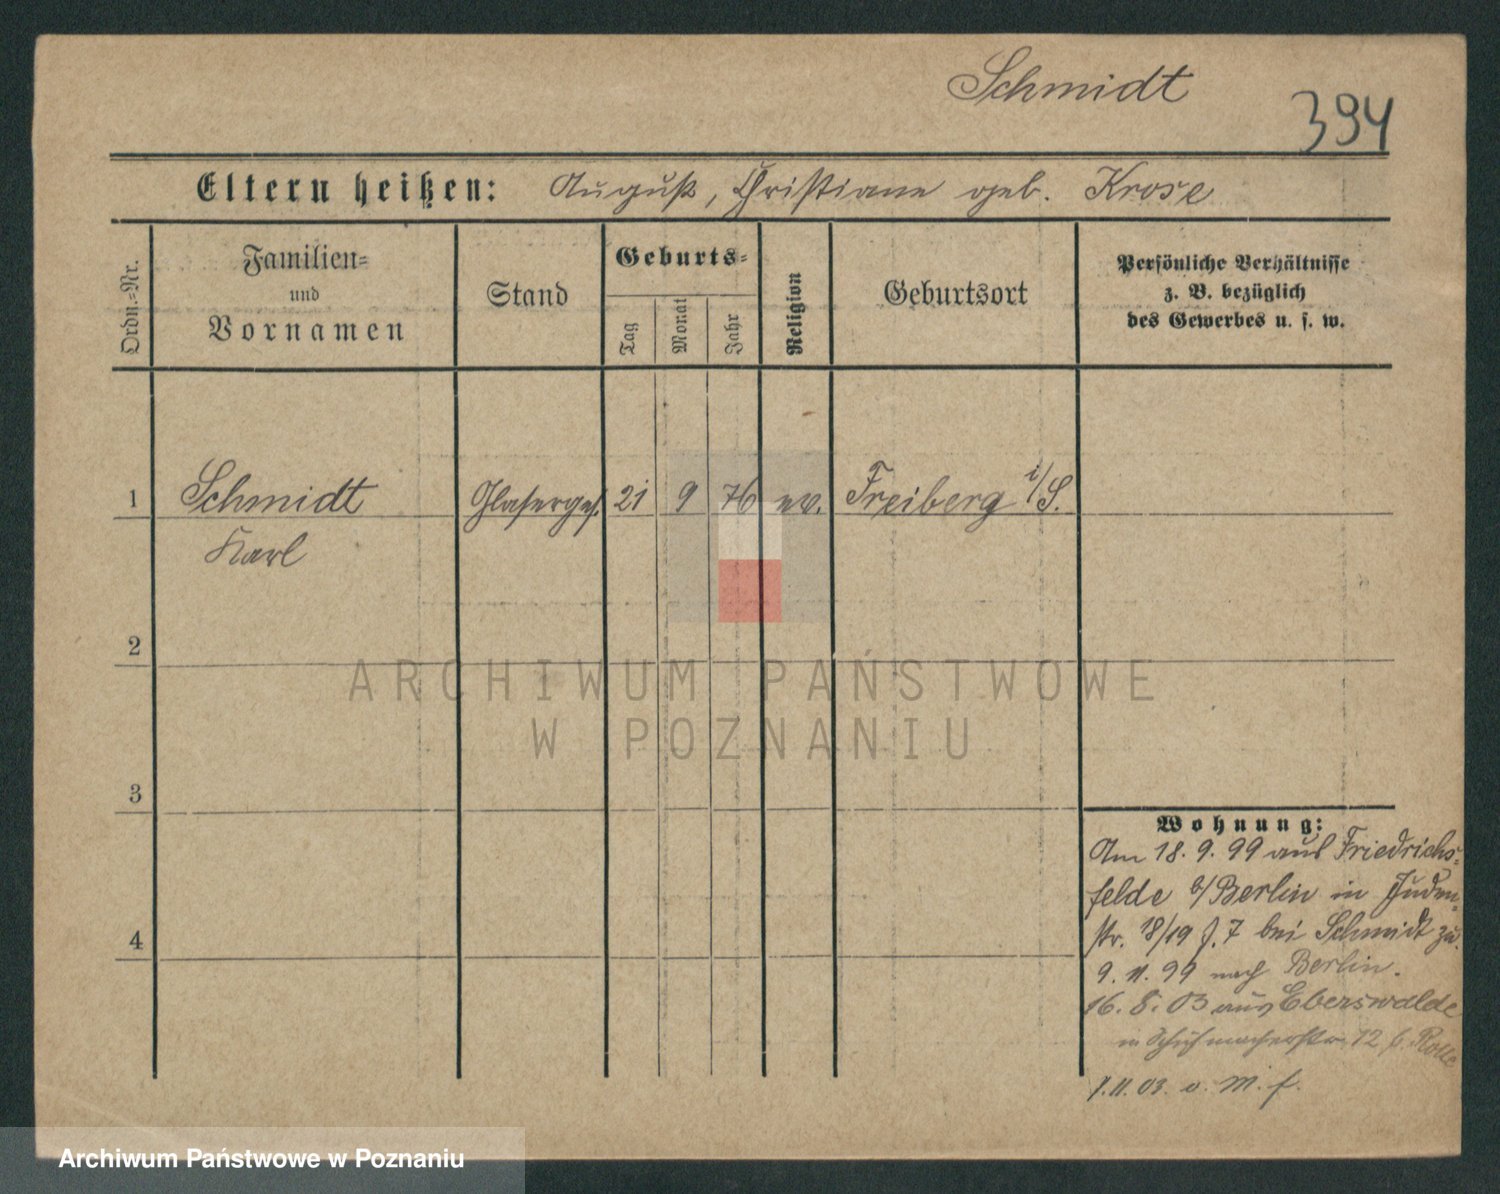 Schmidt
394
Eltern heißen: August, Christiane geb. Krose
Ordn.-Nr.
Familien-
und
Vornamen
Stand
Geburts-
Tag
Monat
Jahr
Religion
Geburtsort
Persönliche Verhältnisse
z. B. bezüglich
des Gewerbes u. s. w.
1 Schmidt Glaserges. 21 9 76 ev. Freiberg i/S.
Karl
2
3
4
ARCHIWUM PAŃSTWOWE
W POZNANIU
Wohnung:
Am 18. 9. 99 aus Friedrichs-
felde b/Berlin in Juden-
str. 18/19 J. 7 bei Schmidt zu.
9. 11. 99 nach Berlin.
16. 8. 03 aus Eberswalde
in Schuhmacherstr. 12 b.
1. 11. 03. o. M. f.
Archiwum Państwowe w Poznaniu